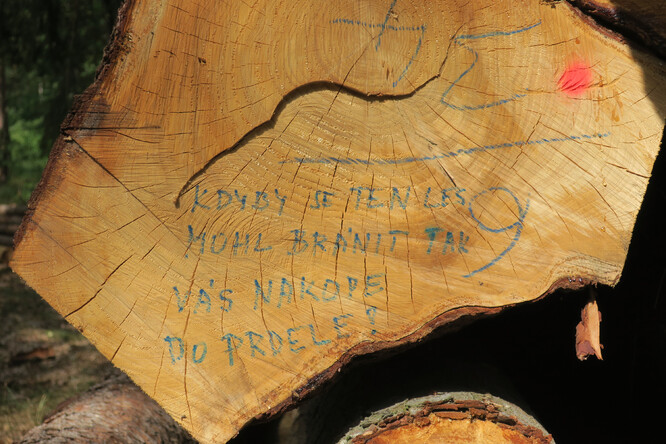 KDYBY SE TEN LES
MOHL BRÁNIT TAK
VÁS NAKOPE
DO PRDELE!
9